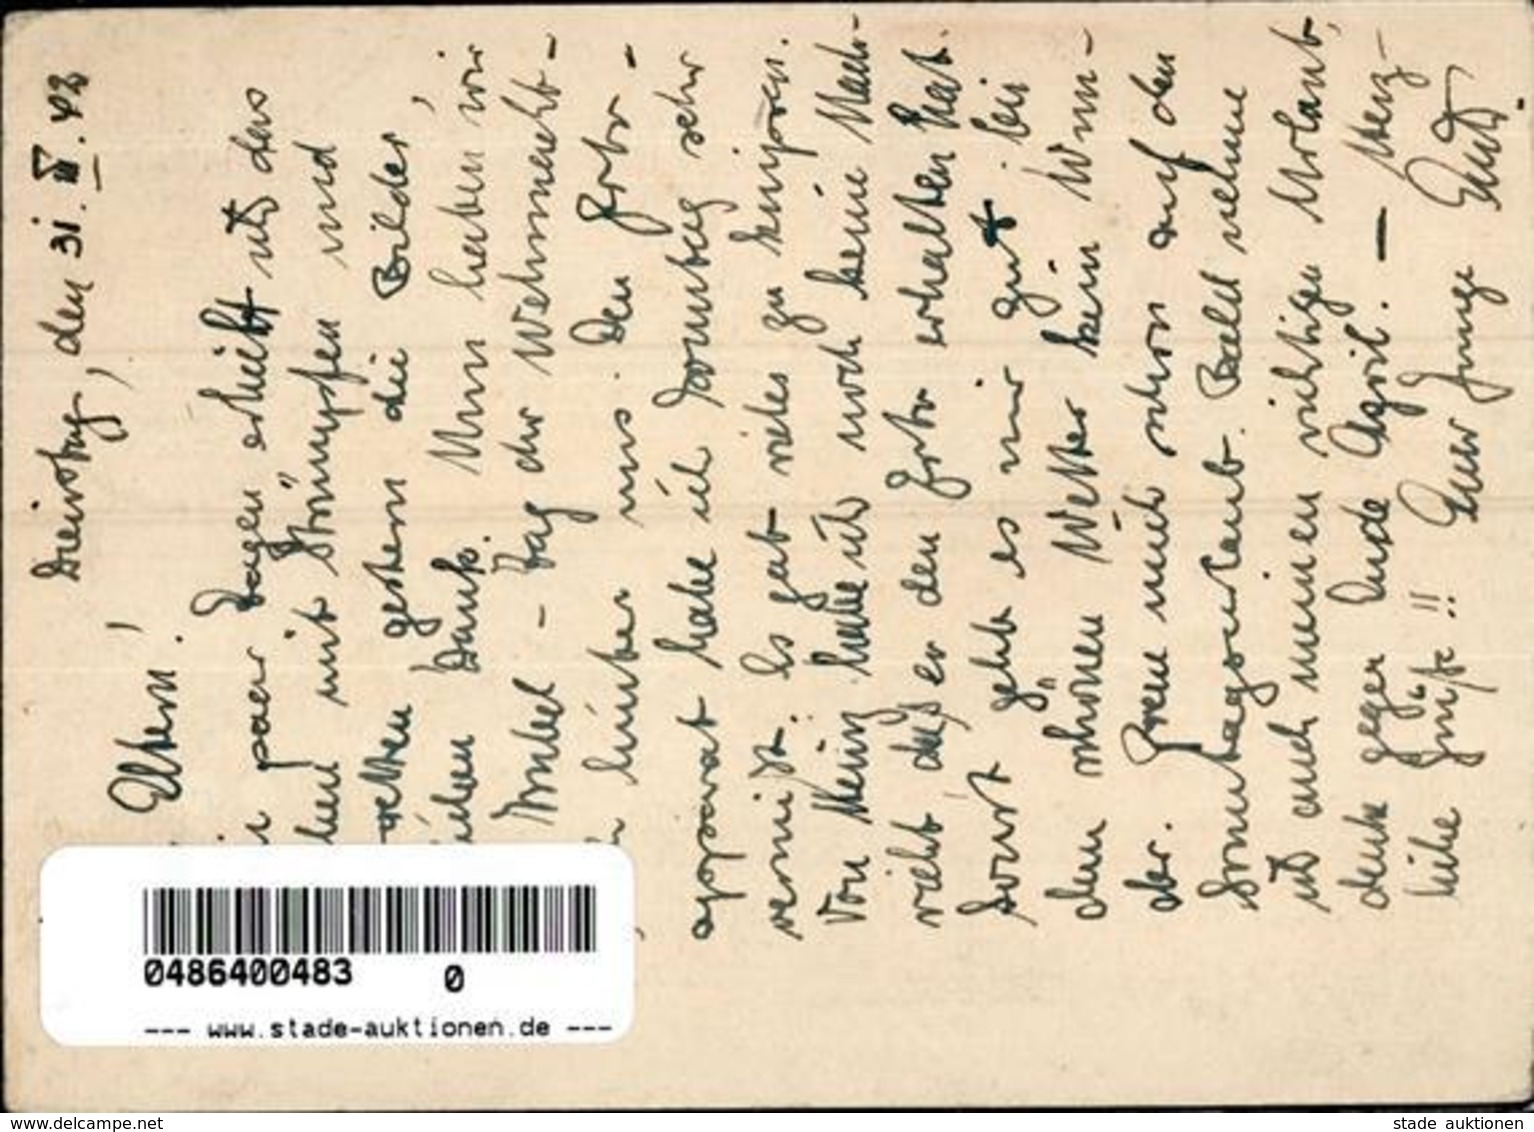 Dienstag, den 31. III. 42
Eltern!
paar Tagen erhielt ich das
mit Strümpfen und
gestern die Bilder,
Dank. Nun haben wir
Tag der Wehrmacht-
hinter uns. Den Foto-
apparat habe ich Sonntag sehr
vermißt. Es gab vieles zu knipsen.
Von Heinz habe ich noch keine Nach-
richt daß er den Foto erhalten hat.
Sonst geht es mir gut bei
dem schönen Wetter kein Wun-
der. Freue mich schon auf den
Sonntagsurlaub. Bald nehme
ich auch meinen richtigen Urlaub,
denke gegen Ende April. — Herz-
liche Grüße!! Euer Junge
0486400483 0
--- www.stade-auktionen.de ---
www.delcampe.net
stade auktionen